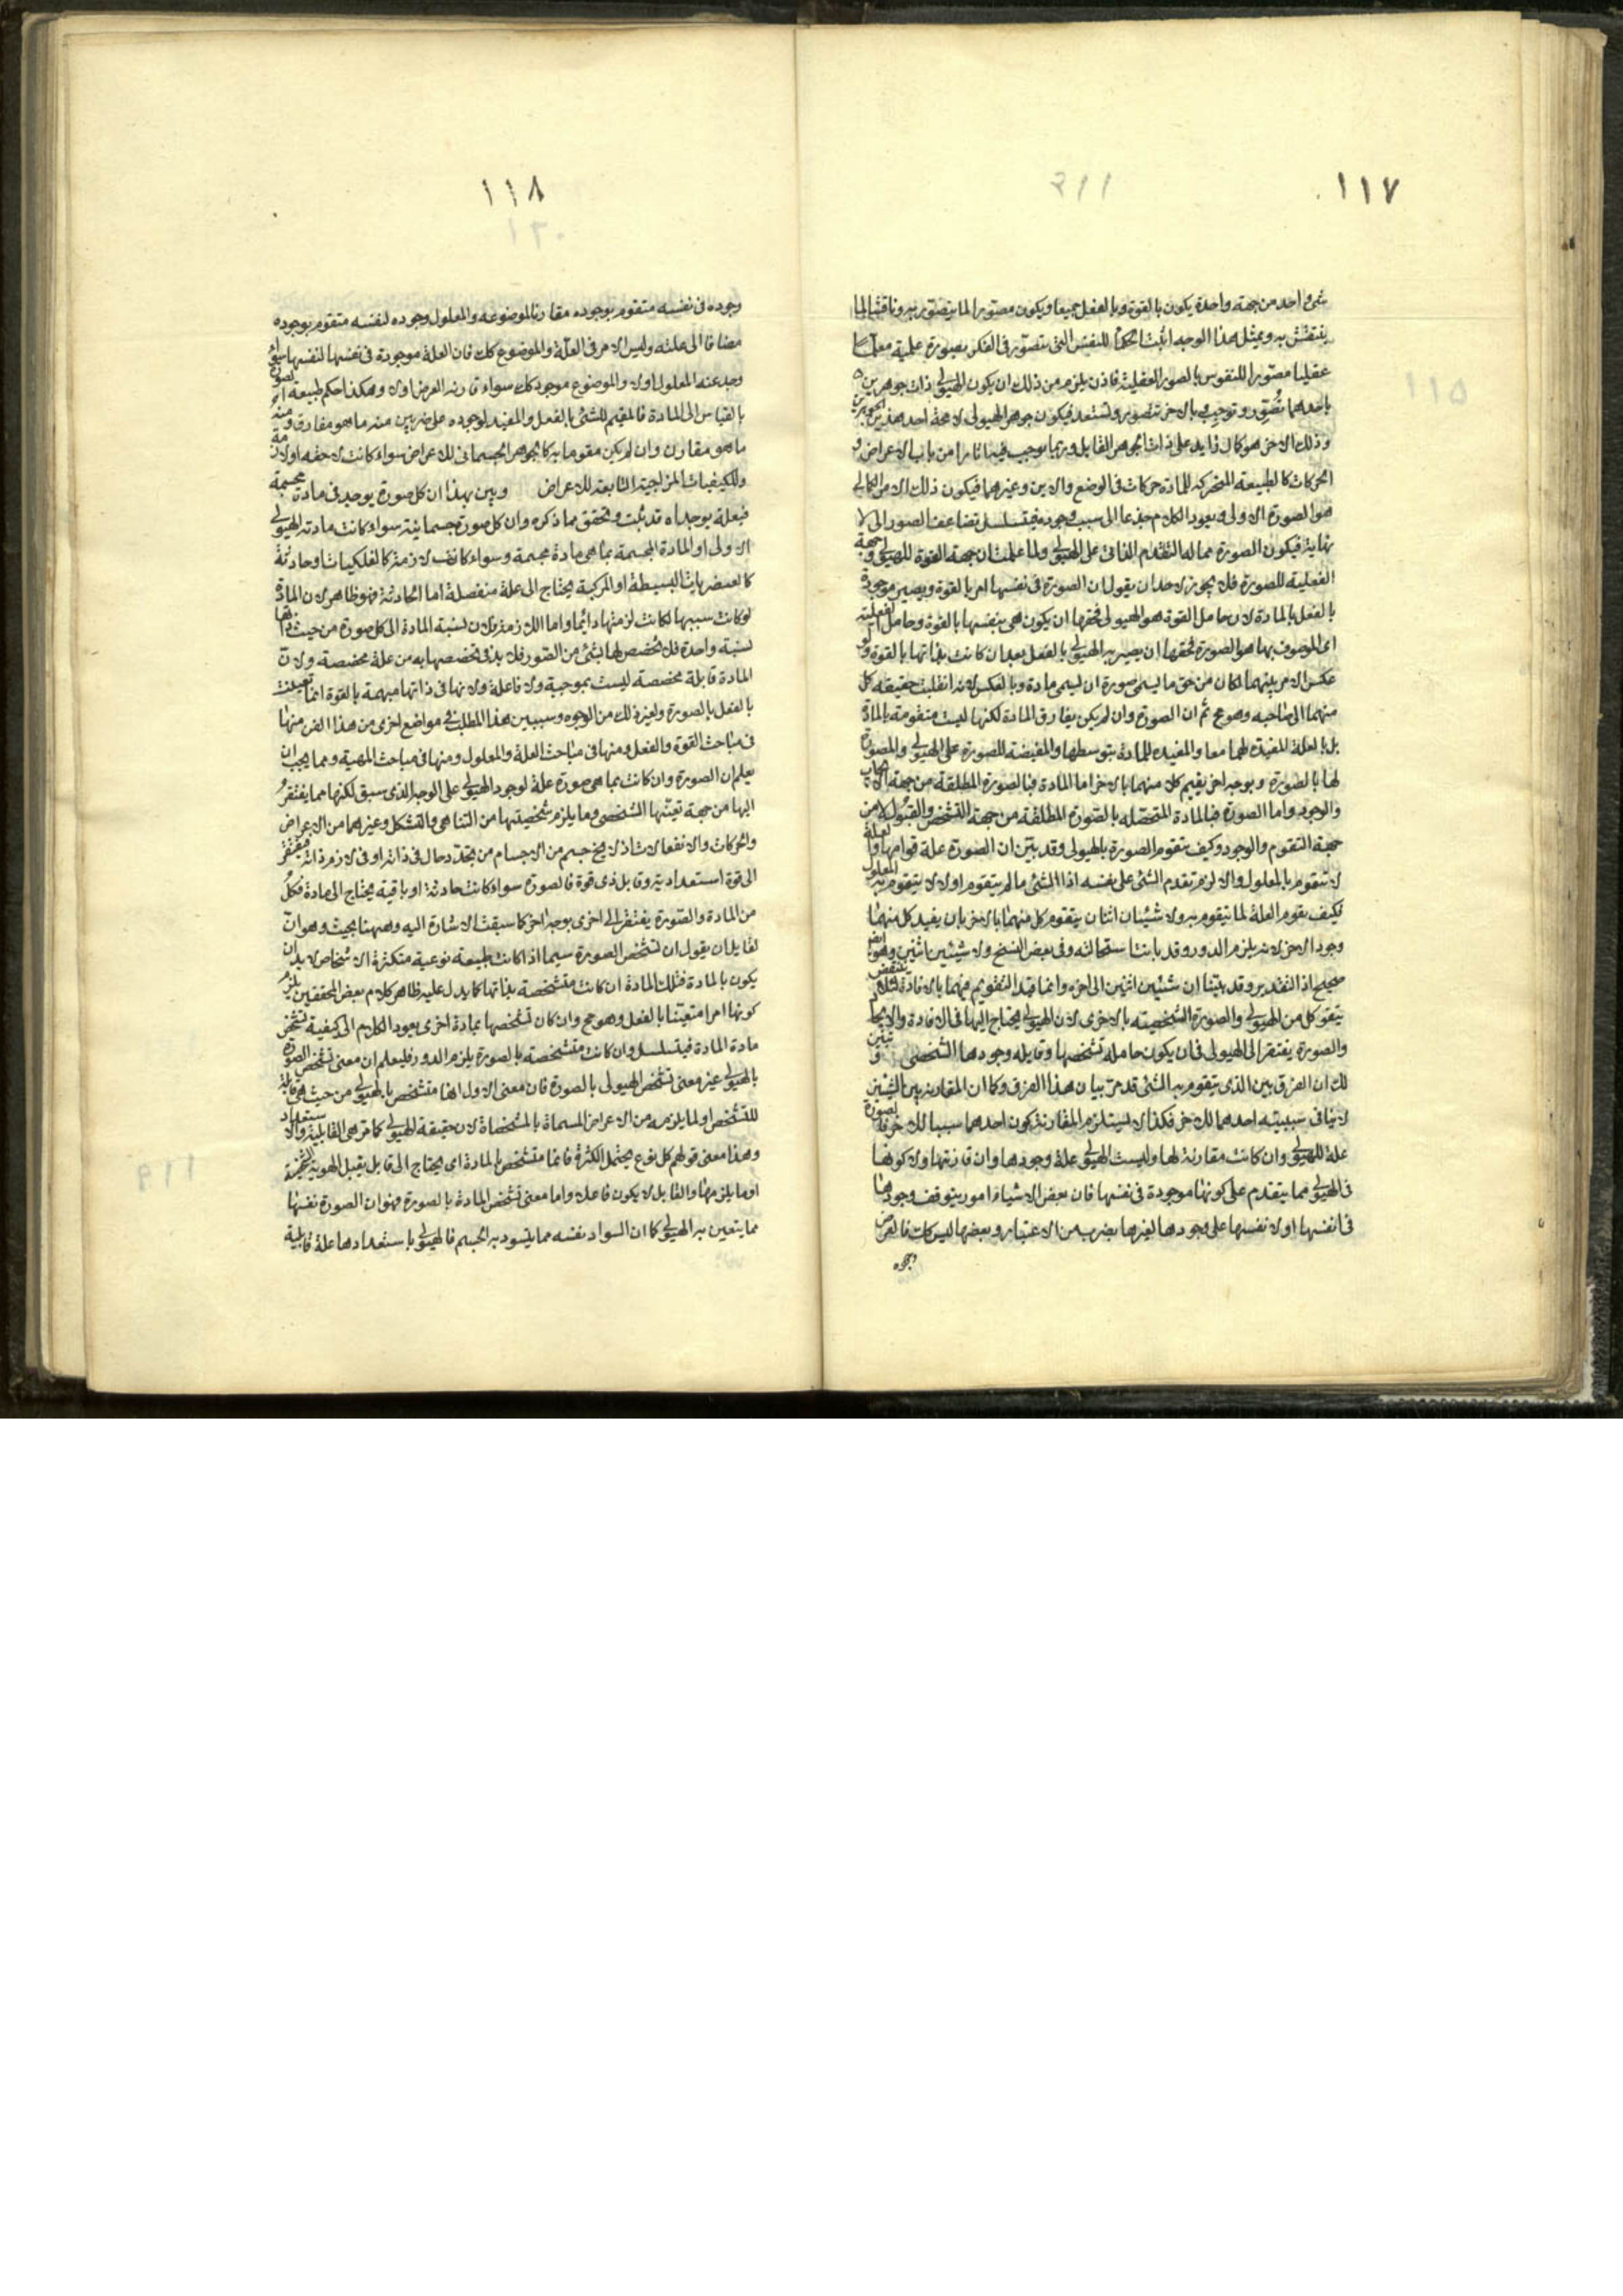 ١١٧
شئ واحد من جهة واحدة يكون بالقوة وبالفعل جميعا ويكون مصورا لما يتصور به وناقشا لما
ينتقش به وبمثل هذا الوجه اثبت الحكماء للنفس التى يتصور فى الفكر بصورة علمية معلما
عقليا مصورا للنفوس بالصور العقلية فاذن يلزم من ذلك ان يكون الهيولى ذات جوهرين
باحدهما تصور وتوجب وبالاخر تتصور وتستعد فيكون جوهر الهيولى لاحد هذين الجوهرين
وذلك الاخر هو كمال زايد على ذات الجوهر القابل وربما يوجب فيه اثارا من باب الاعراض و
الحركات كالطبيعة المتحركة للمادة حركات فى الوضع والاين وغيرهما فيكون ذلك الامر الكمالى
هو الصورة الاولى ويعود الكلام جذعا الى سبب وجوده فيتسلسل تضاعف الصور الى لا
نهاية فيكون الصورة مما له التقدم الذاتى على الهيولى ولما علمت ان جهة القوة للهيولى وجهة
الفعلية للصورة فلا يجوز لاحد ان يقول ان الصورة فى نفسها امر بالقوة ويصير موجودة
بالفعل بالمادة لان حامل القوة هو الهيولى فحقها ان يكون هى بنفسها بالقوة وحامل الفعلية
اى الموصوف بها هو الصورة فحقها ان يصير به الهيولى بالفعل بعد ان كانت بذاتها بالقوة ولو
عكس الامر بينهما لكان من حق ما يسمى صورة ان يسمى مادة وبالعكس لانه انقلبت حقيقة كل
منهما الى صاحبه وهو مح ثم ان الصورة وان لم يكن يفارق المادة لكنها ليست متقومة بالمادة
بل بالعلة المفيدة لهما معا والمفيدة للمادة بتوسطها والمفيضة للصورة على الهيولى والمصورة
لها بالصورة وبوجه اخر يقيم كلا منهما بالاخر اما المادة فبالصورة المطلقة من جهة الايجاب
والوجود واما الصورة فبالمادة المتحصله بالصورة المطلقة من جهة التشخص والقبول لا من
جهة التقوم والوجود وكيف تتقوم الصورة بالهيولى وقد بين ان الصورة علة قوامها والعلة
لا تتقوم بالمعلول والا لزم تقدم الشئ على نفسه اذ الشئ ما لم يتقوم اولا لا يتقوم به المعلول
فكيف يقوم العلة لما يتقوم به ولا شيئان اثنان يتقوم كل منهما بالاخر بان يفيد كل منهما
وجود الاخر لانه يلزم الدور وقد بانت استحالته وفى بعض النسخ ولا شيئين اثنين وهو ايض
صحيح اذ التقدير وقد بينا ان شيئين اثنين الى اخره وانما قيد التقويم فيهما بالافادة لئلا ينتقض
بتقوم كل من الهيولى والصورة الشخصيته بالاخرى لان الهيولى يحتاج اليها فى الافادة والايجاب
والصورة يفتقر الى الهيولى فى ان يكون حاملة تشخصها وقابلة وجودها الشخصى وتبين
لك ان الفرق بين الذى يتقوم به الشئ قد مر بيان هذا الفرق وكما ان المقارنة بين الشيئين
لا ينافى سببية احدهما للاخر فكذا لا يستلزم المقارنة كون احدهما سببا للاخر فالصورة
علة للهيولى وان كانت مقارنة لها وليست الهيولى علة وجودها وان قارنتها ولا كونها
فى الهيولى مما يتقدم على كونها موجودة فى نفسها فان بعض الاشياء امور يتوقف وجودها
فى انفسها او لا نفسها على وجودها لغيرها بضرب من الاعتبار وبعضها ليس كك فالعرض
وجوده
١١٨
وجوده فى نفسه متقوم بوجوده مقارنا لموضوعه والمعلول وجوده لنفسه متقوم بوجوده
مضافا الى علته وليس الامر فى العلة والموضوع كك فان العلة موجودة فى نفسها لنفسها سواء
وجد عنه المعلول اولا والموضوع موجود كك سواء قارنه العرض اولا وهكذا حكم طبيعة الصورة
بالقياس الى المادة فالمقيم للشئ بالفعل والمفيد لوجوده على ضربين منه ما هو مفارق ومنه
ما هو مقارن وان لم يكن مقوما به كالجوهر الجسمانى للاعراض سواء كانت لاحقه او لازمة
وللكيفيات المزاجية التابعة للاعراض وبين بهذا ان كل صورة يوجد فى مادة مجسمة
فبعلة يوجد اه قد ثبت وتحقق مما ذكره وان كل صورة جسمانية سواء كانت مادته الهيولى
الاولى او المادة المجسمة بما هى مادة مجسمة وسواء كانت لازمة كالفلكيات او حادثة
كالعنصريات البسيطة او المركبة يحتاج الى علة منفصلة اما الحادثة فهو ظاهر لان المادة
لو كانت سببها لكانت لزمتها دائما واما اللازمة فلان نسبة المادة الى كل صورة من حيث ذاتها
نسبة واحدة فلا تخصص لها بشئ من الصور فلا بد فى تخصصها به من علة مخصصة ولان
المادة قابلة مخصصة ليست بموجبة ولا فاعلة ولانها فى ذاتها مبهمة بالقوة انما تعينت
بالفعل بالصورة ولغير ذلك من الوجوه وسيبين هذا المطلب فى مواضع اخرى من هذا الفن منها
فى مباحث القوة والفعل ومنها فى مباحث العلة والمعلول ومنها فى مباحث المهية ومما يجب ان
يعلم ان الصورة وان كانت بما هى صورة علة لوجود الهيولى على الوجه الذى سبق لكنها مما يفتقر
اليها من جهة تعينها الشخصى وما يلزم شخصيتها من التناهى والتشكل وغيرهما من الاعراض
والحركات والانفعالات اذ لا يخ جسم من الاجسام من تجدد حال فى ذاته او فى لازم ذاته فيفتقر
الى قوة استعدادية وقابل ذى قوة فالصورة سواء كانت حادثة او باقية يحتاج الى مادة فكل
من المادة والصورة يفتقر الى اخرى بوجه اخر كما سبقت الاشارة اليه وههنا بحث وهو ان
لقايل ان يقول ان تشخص الصورة سيما اذا كانت طبيعة نوعية متكثرة الاشخاص لا بد ان
يكون بالمادة فتلك المادة ان كانت متشخصة بذاتها كما يدل عليه ظاهر كلام بعض المحققين يلزم
كونها امرا متعينا بالفعل وهو مح وان كان تشخصها بمادة اخرى يعود الكلام الى كيفية تشخص
مادة المادة فيتسلسل وان كانت متشخصة بالصورة يلزم الدور فليعلم ان معنى تشخص الصورة
بالهيولى غير معنى تشخص الهيولى بالصورة فان معنى الاول انها متشخص بالهيولى من حيث هى قابلة
للتشخص او لما يلزمه من الاعراض المسماة بالمشخصاة لان حقيقة الهيولى كما مر هى القابلية والاستعداد
وهذا معنى قولهم كل نوع يحتمل الكثرة فانما متشخص بالمادة اى يحتاج الى قابل يقبل الهوية الشخصية
او ما يلزمها والقابل لا يكون فاعلا واما معنى تشخص المادة بالصورة فهو ان الصورة نفسها
مما يتعين به الهيولى كما ان السواد نفسه مما يتسود به الجسم فالهيولى باستعدادها علة قابلية